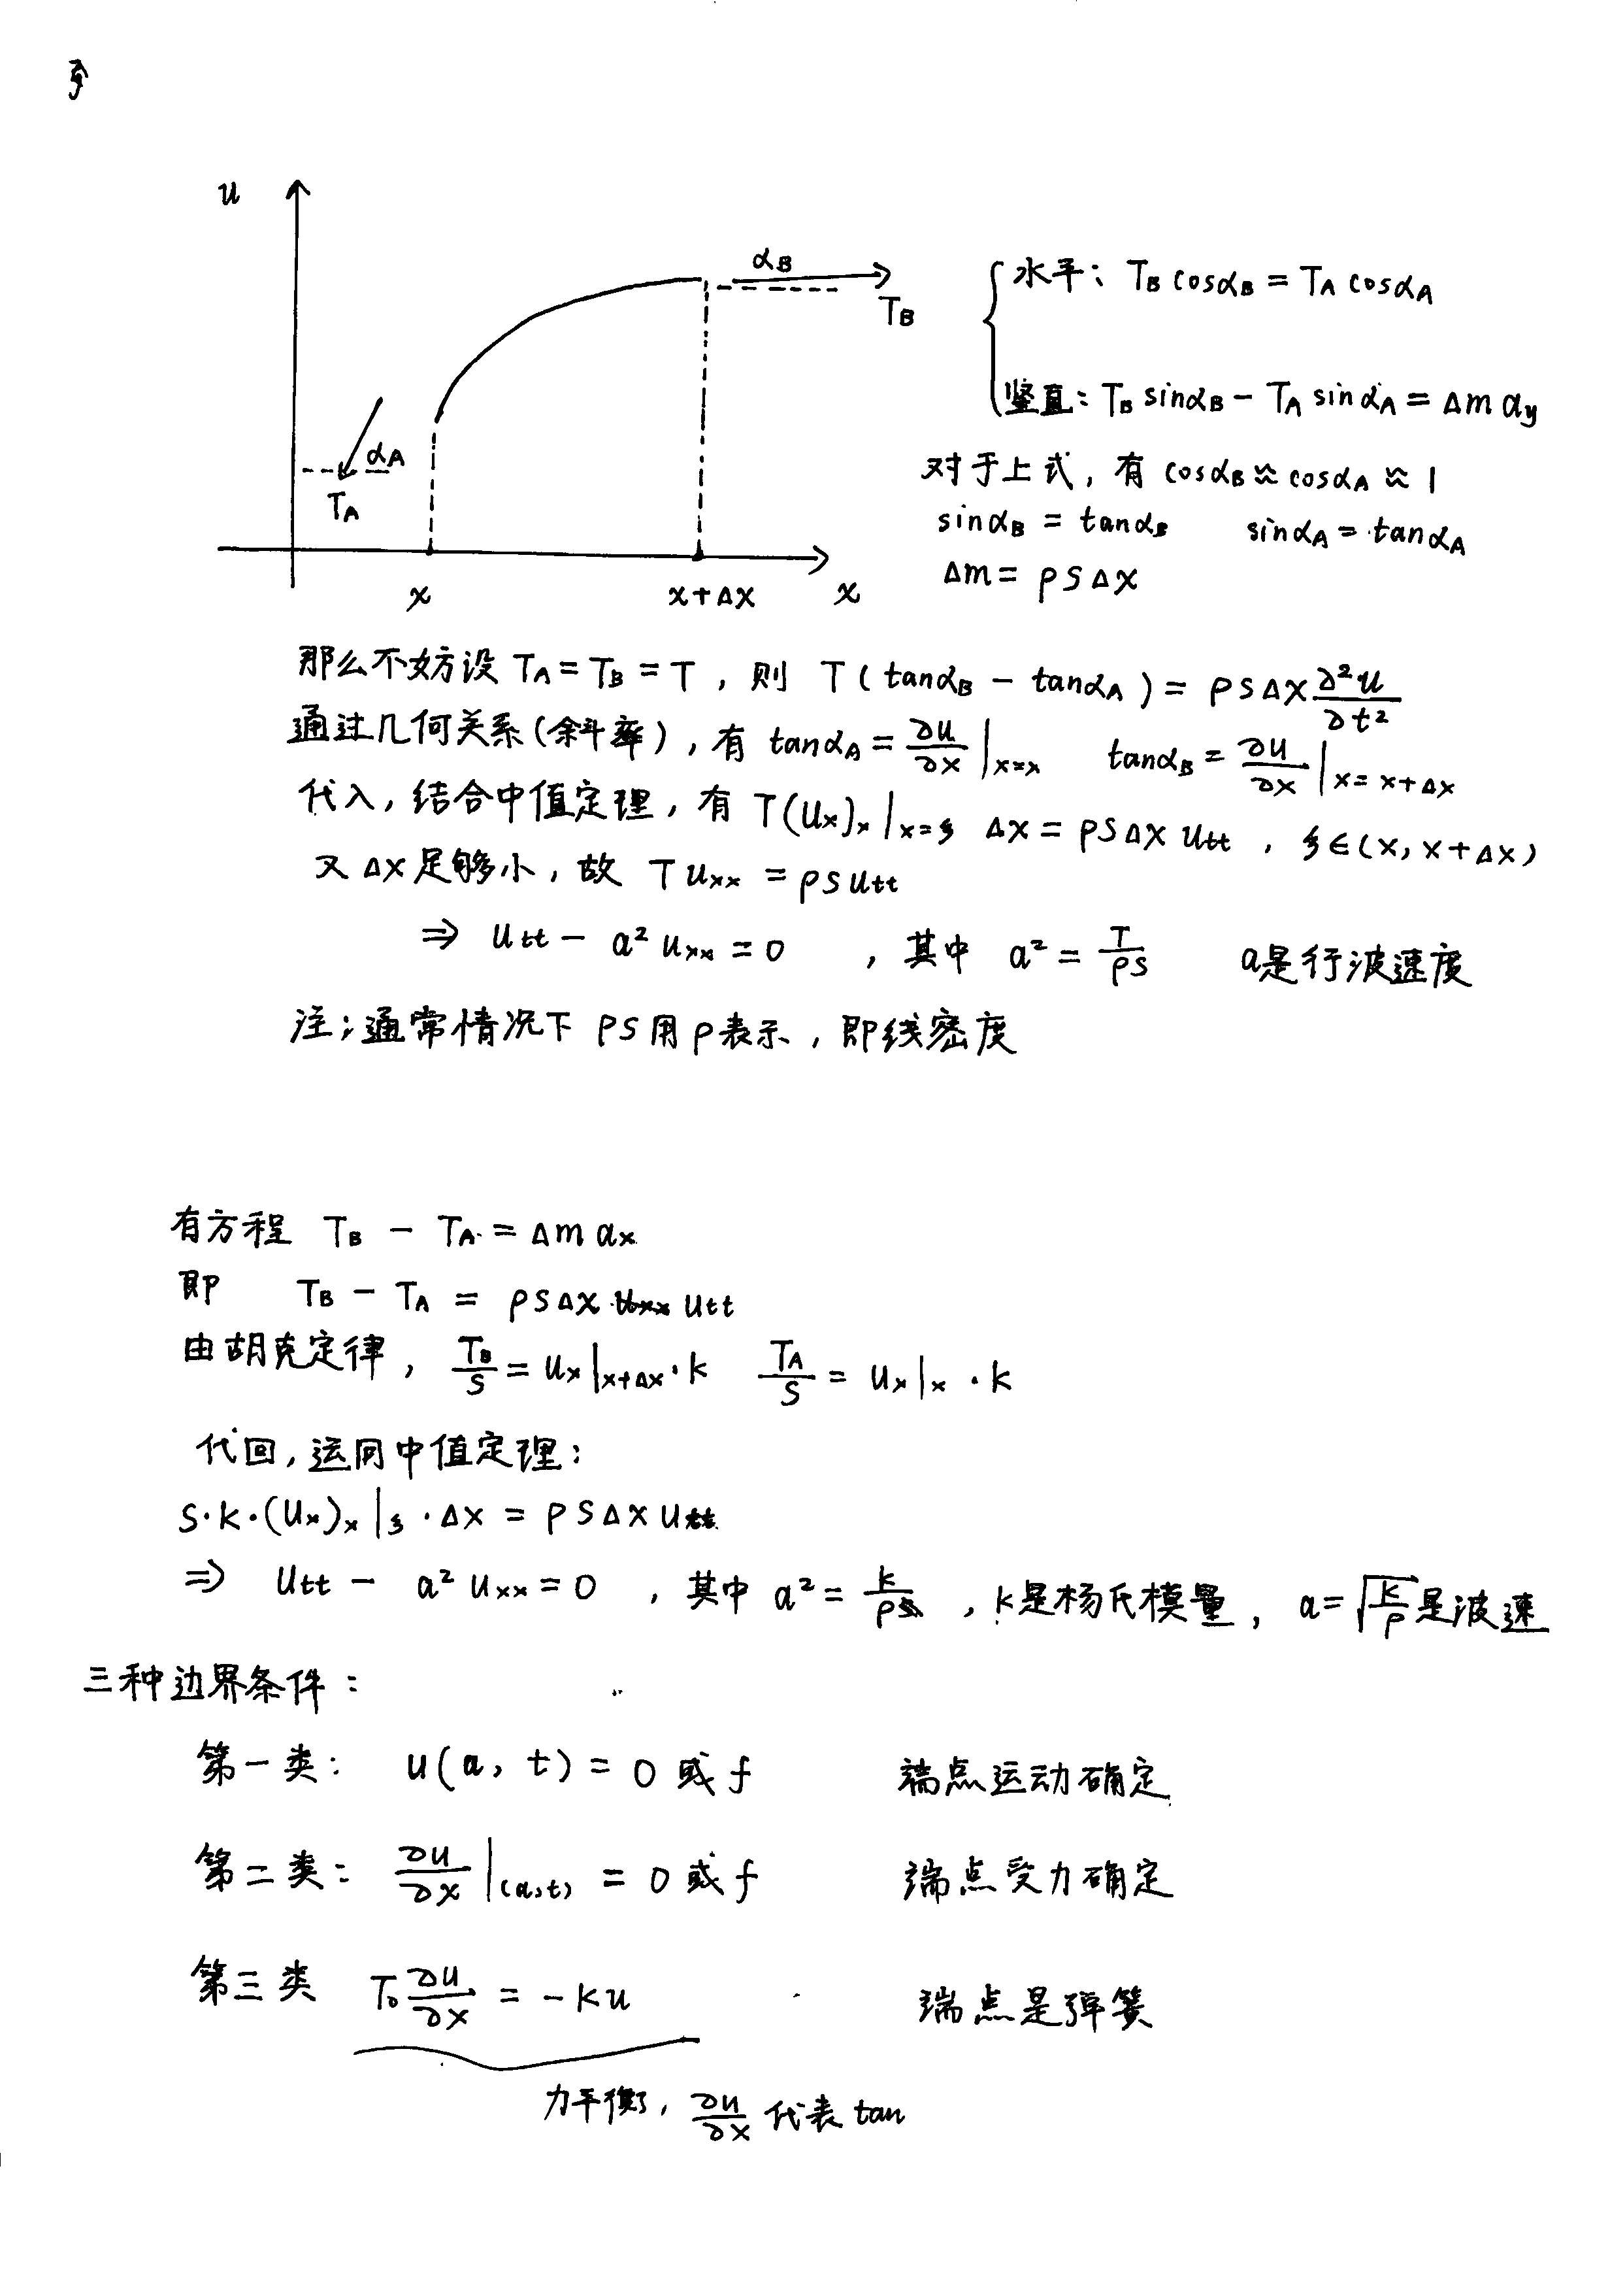 u
α_B
T_B
α_A
T_A
x
x+Δx
x
水平: T_B cosα_B = T_A cosα_A
竖直: T_B sinα_B - T_A sinα_A = Δm a_y
对于上式, 有 cosα_B ≈ cosα_A ≈ 1
sinα_B = tanα_B sinα_A = tanα_A
Δm = ρSΔx
那么不妨设 T_A = T_B = T, 则 T(tanα_B - tanα_A) = ρSΔx ∂²u/∂t²
通过几何关系(斜率), 有 tanα_A = ∂u/∂x |x=x tanα_B = ∂u/∂x |x=x+Δx
代入, 结合中值定理, 有 T(u_x)_x |x=ξ Δx = ρSΔx u_tt , ξ∈(x, x+Δx)
又 Δx 足够小, 故 T u_xx = ρS u_tt
⇒ u_tt - a² u_xx = 0 , 其中 a² = T/ρS a是行波速度
注: 通常情况下 ρS 用 ρ 表示, 即线密度
有方程 T_B - T_A = Δm a_x
即 T_B - T_A = ρSΔx u_tt
由胡克定律, T_B/S = u_x|x+Δx · k T_A/S = u_x|x · k
代回, 运同中值定理:
S·k·(u_x)_x|ξ · Δx = ρSΔx u_tt
⇒ u_tt - a² u_xx = 0 , 其中 a² = k/ρ , k是杨氏模量, a = √(k/ρ) 是波速
三种边界条件:
第一类: u(a, t) = 0 或 f 端点运动确定
第二类: ∂u/∂x |(a,t) = 0 或 f 端点受力确定
第三类 T₀ ∂u/∂x = -ku 端点是弹簧
力平衡, ∂u/∂x 代表 tan